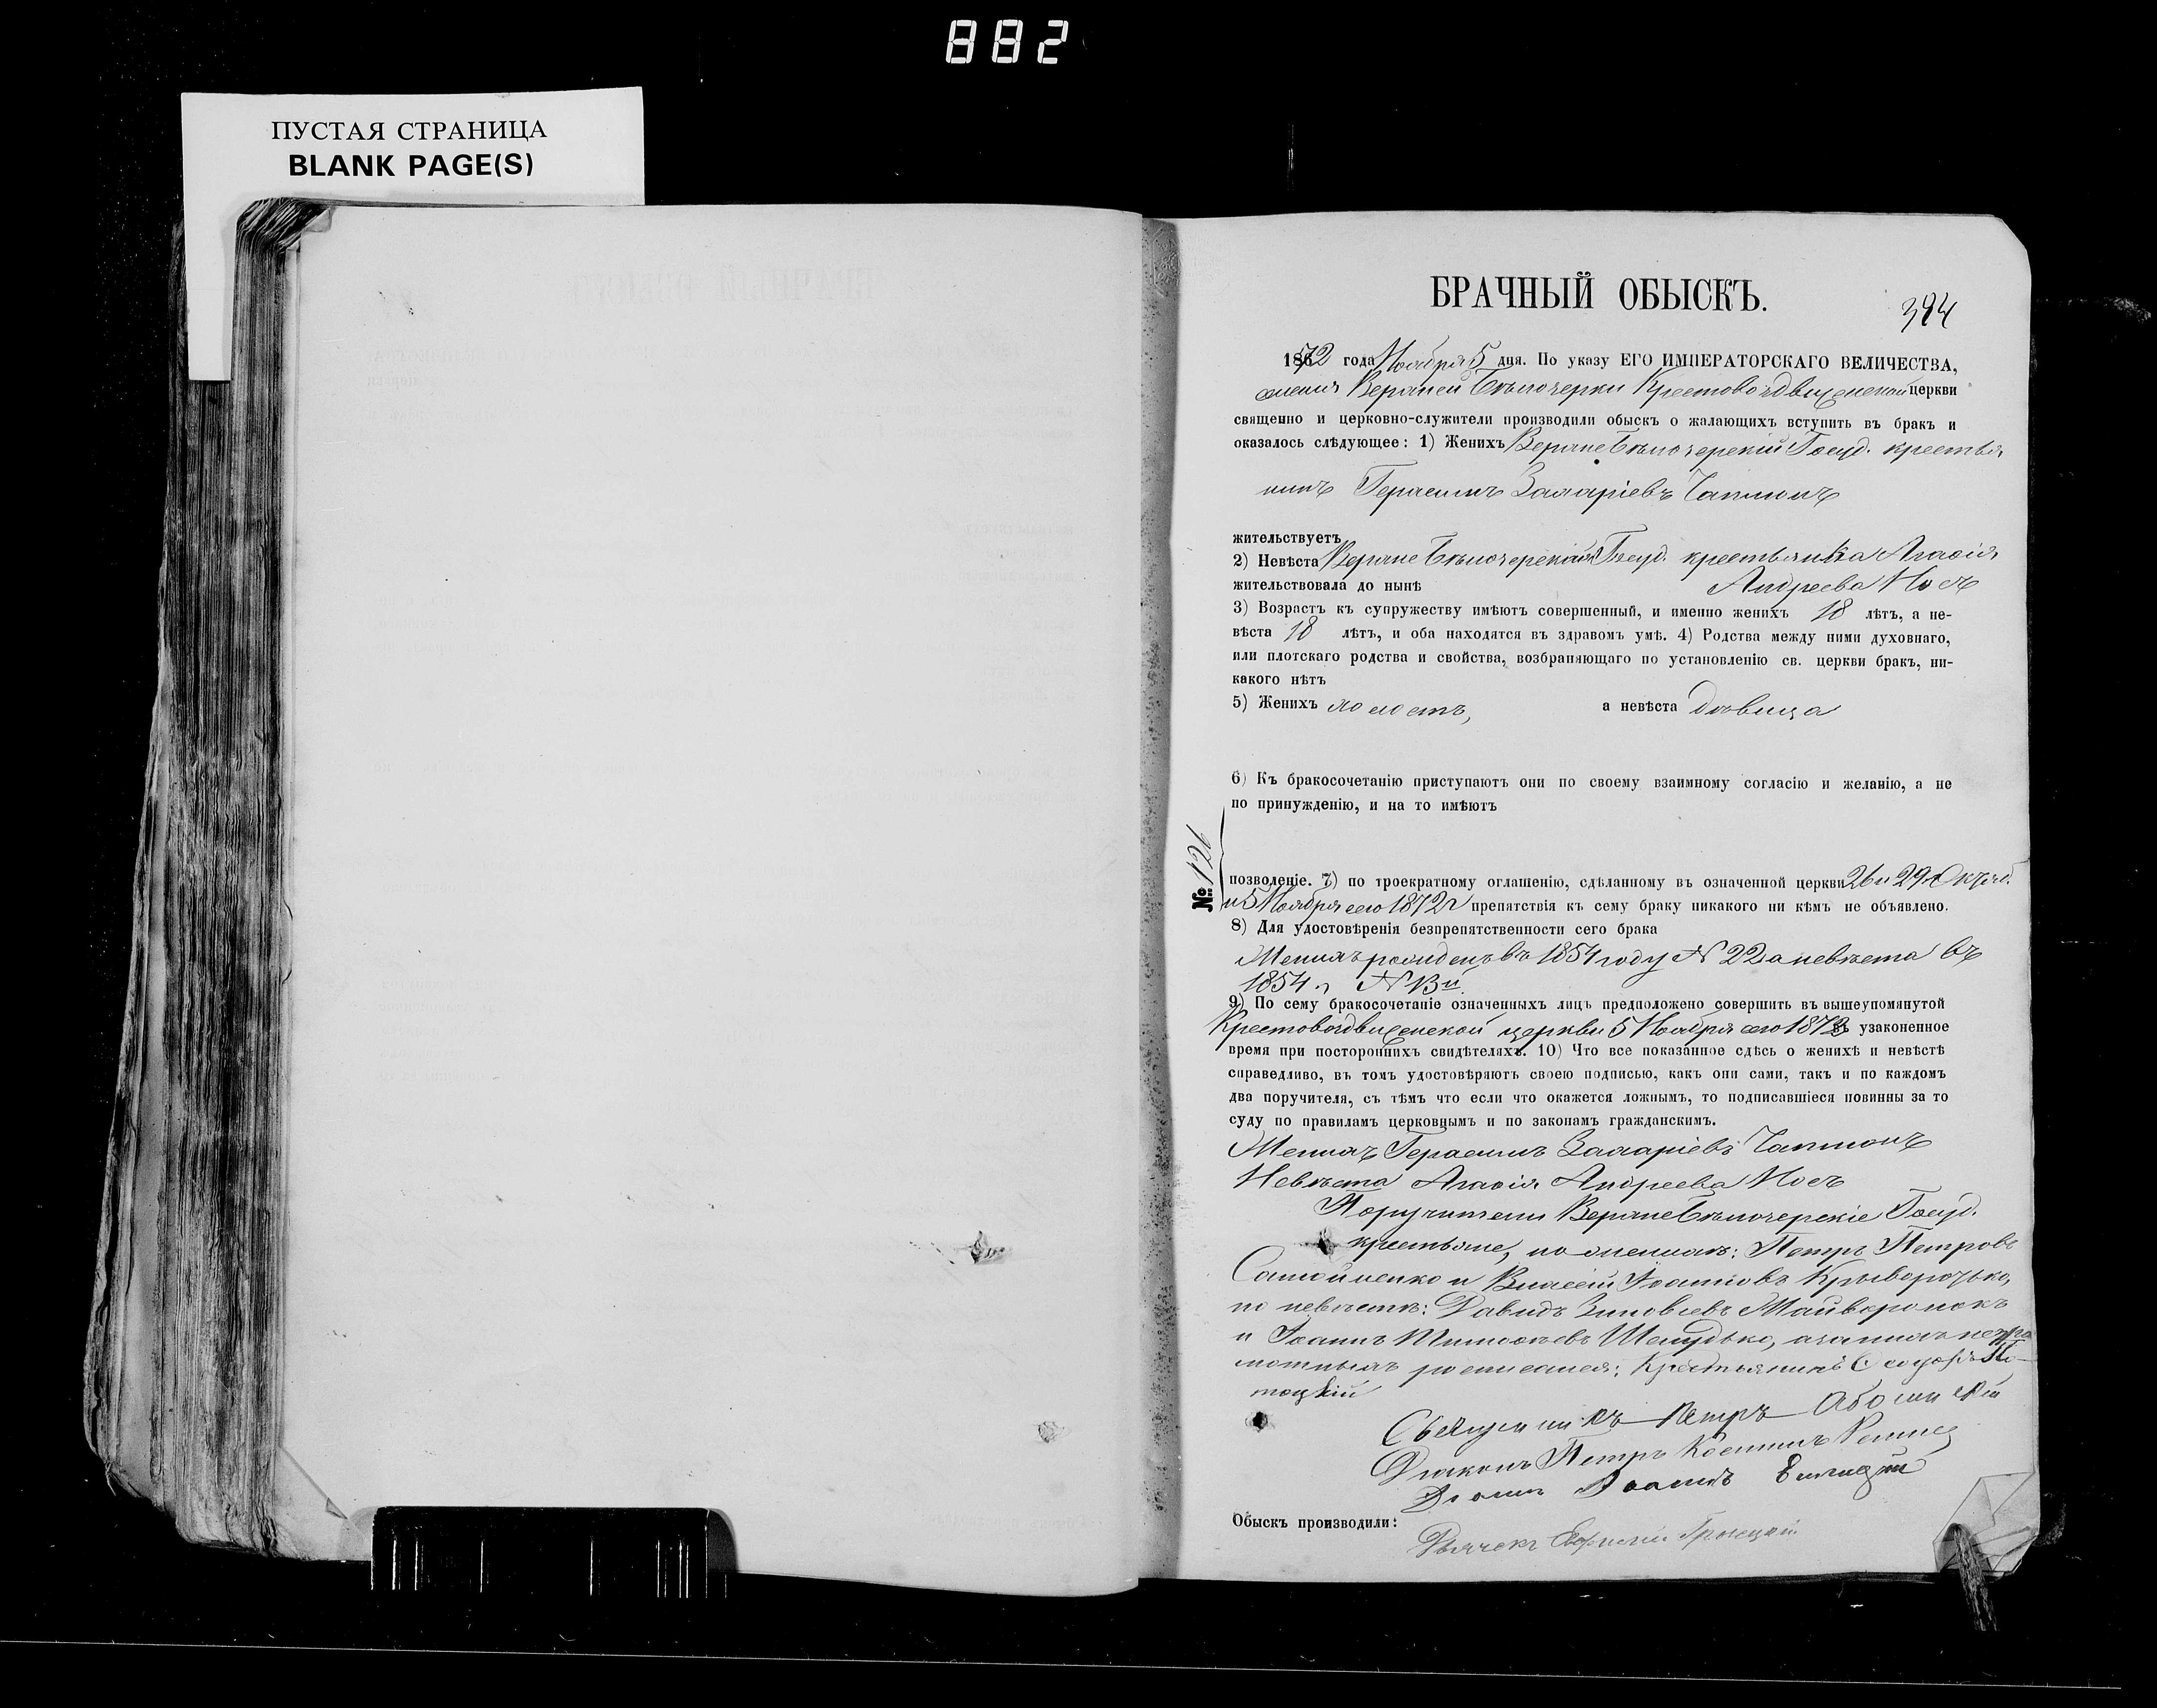 882
ПУСТАЯ СТРАНИЦА
BLANK PAGE(S)
БРАЧНЫЙ ОБЫСКЪ.
394
1872 года Ноября 5 дня. По указу ЕГО ИМПЕРАТОРСКАГО ВЕЛИЧЕСТВА,
Крестовоздвиженской церкви
священно и церковно-служители производили обыскъ о жалающихъ вступить въ бракъ и
оказалось слѣдующее: 1) Женихъ Верхнебѣлозерскій Госуд. крестья
нинъ Герасимъ Захаріевъ
жительствуетъ
2) Невѣста Верхнебѣлозерская Госуд. крестьянка Агафія
жительствовала до нынѣ Андреева Носъ
3) Возрастъ къ супружеству имѣютъ совершенный, и именно женихъ 18 лѣтъ, а не-
вѣста 18 лѣтъ, и оба находятся въ здравомъ умѣ. 4) Родства между ними духовнаго,
или плотскаго родства и свойства, возбраняющаго по установленію св. церкви бракъ, ни-
какого нѣтъ
5) Женихъ холостъ, а невѣста дѣвица
6) Къ бракосочетанію приступаютъ они по своему взаимному согласію и желанію, а не
по принужденію, и на то имѣютъ
№ 126
позволеніе. 7) по троекратному оглашенію, сдѣланному въ означенной церкви 26 и 29 Октяб.
и 5 Ноября сего 1872 г препятствія къ сему браку никакого ни кѣмъ не объявлено.
8) Для удостовѣренія безпрепятственности сего брака
Женихъ рожденъ въ 1854 году № 22 а невѣста въ
1854 г. №
9) По сему бракосочетаніе означенныхъ лицъ предположено совершить въ вышеупомянутой
Крестовоздвиженской церкви 5 Ноября сего 1872 въ узаконенное
время при постороннихъ свидѣтеляхъ. 10) Что все показанное сдѣсь о женихѣ и невѣстѣ
справедливо, въ томъ удостовѣряютъ своею подписью, какъ они сами, такъ и по каждомъ
два поручителя, съ тѣмъ что если что окажется ложнымъ, то подписавшіеся повинны за то
суду по правиламъ церковнымъ и по законамъ гражданскимъ.
Женихъ Герасимъ Захаріевъ
Невѣста Агафія Андреева Носъ
Поручители Верхнебѣлозерскіе Госуд.
крестьяне, по женихѣ: Петръ Петровъ
Самойленко и Іоанновъ
по невѣстѣ: Давидъ Зиновіевъ
и Іоаннъ Шелудько, а за нихъ неграмотныхъ росписался: Крестьянинъ
Священникъ Петръ
Діаконъ Петръ
Іоаннъ
Обыскъ производили:
Дьячекъ